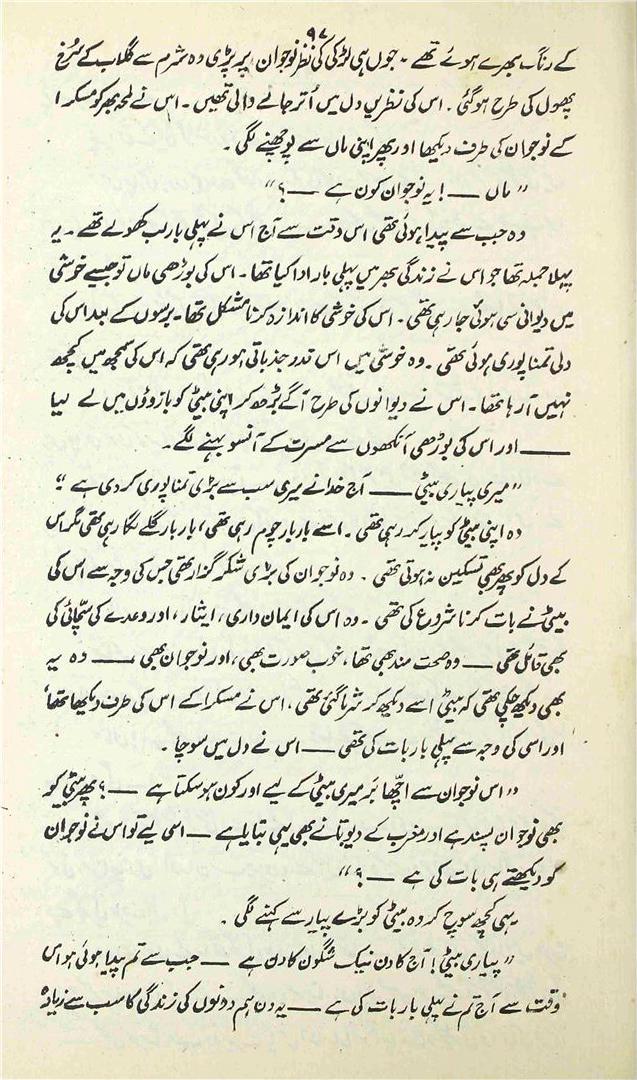 ۹۷
کے رنگ بھرے ہوئے تھے ۔ جوں ہی لڑکی کی نظر نوجوان پر پڑی وہ شرم سے گلاب کے سُرخ
پھول کی طرح ہو گئی ۔ اس کی نظریں دل میں اُتر جانے والی تھیں ۔ اس نے لمحہ بھر کو مسکرا
کے نوجوان کی طرف دیکھا اور پھر اپنی ماں سے پوچھنے لگی ۔
” ماں —— ! یہ نوجوان کون ہے —— ؟ “
وہ جب سے پیدا ہوئی تھی اس وقت سے آج اس نے پہلی بار لب کھولے تھے ۔ یہ
پہلا جملہ تھا جو اس نے زندگی بھر میں پہلی بار ادا کیا تھا ۔ اس کی بوڑھی ماں تو جیسے خوشی
میں دیوانی سی ہوئی جا رہی تھی ۔ اس کی خوشی کا اندازہ کرنا مشکل تھا ۔ برسوں کے بعد اس کی
دلی تمنا پوری ہوئی تھی ۔ وہ خوشی میں اس قدر جذباتی ہو رہی تھی کہ اس کی سمجھ میں کچھ
نہیں آ رہا تھا ۔ اس نے دیوانوں کی طرح آگے بڑھ کر اپنی بیٹی کو بازوؤں میں لے لیا
—— اور اس کی بوڑھی آنکھوں سے مسرت کے آنسو بہنے لگے ۔
” میری پیاری بیٹی —— آج خدا نے میری سب سے بڑی تمنا پوری کر دی ہے “
وہ اپنی بیٹی کو پیار کر رہی تھی ۔ اسے بار بار چوم رہی تھی ، بار بار گلے لگا رہی تھی مگر اس
کے دل کو پھر بھی تسکین نہ ہوتی تھی ۔ وہ نوجوان کی بڑی شکر گزار تھی جس کی وجہ سے اس کی
بیٹی نے بات کرنا شروع کی تھی ۔ وہ اس کی ایمان داری ، ایثار ، اور وعدے کی سچّائی کی
بھی قائل تھی —— وہ صحت مند بھی تھا ، خوب صورت بھی ، اور نوجوان بھی ، —— وہ یہ
بھی دیکھ چکی تھی کہ بیٹی اسے دیکھ کر شرما گئی تھی ، اس نے مسکرا کے اس کی طرف دیکھا تھا
اور اسی کی وجہ سے پہلی بار بات کی تھی —— اس نے دل میں سوچا ۔
” اس نوجوان سے اچھّا بَر میری بیٹی کے لیے اور کون ہو سکتا ہے —— ؟ پھر بیٹی کو
بھی نوجوان پسند ہے اور مغرب کے دیوتا نے بھی یہی بتایا ہے —— اسی لیے تو اس نے نوجوان
کو دیکھتے ہی بات کی ہے —— ؟ “
یہی کچھ سوچ کر وہ بیٹی کو بڑے پیار سے کہنے لگی ۔
” پیاری بیٹی ! آج کا دن نیک شگون کا دن ہے —— جب سے تم پیدا ہوئی ہو اس
وقت سے آج تم نے پہلی بار بات کی ہے —— یہ دن ہم دونوں کی زندگی کا سب سے زیادہ